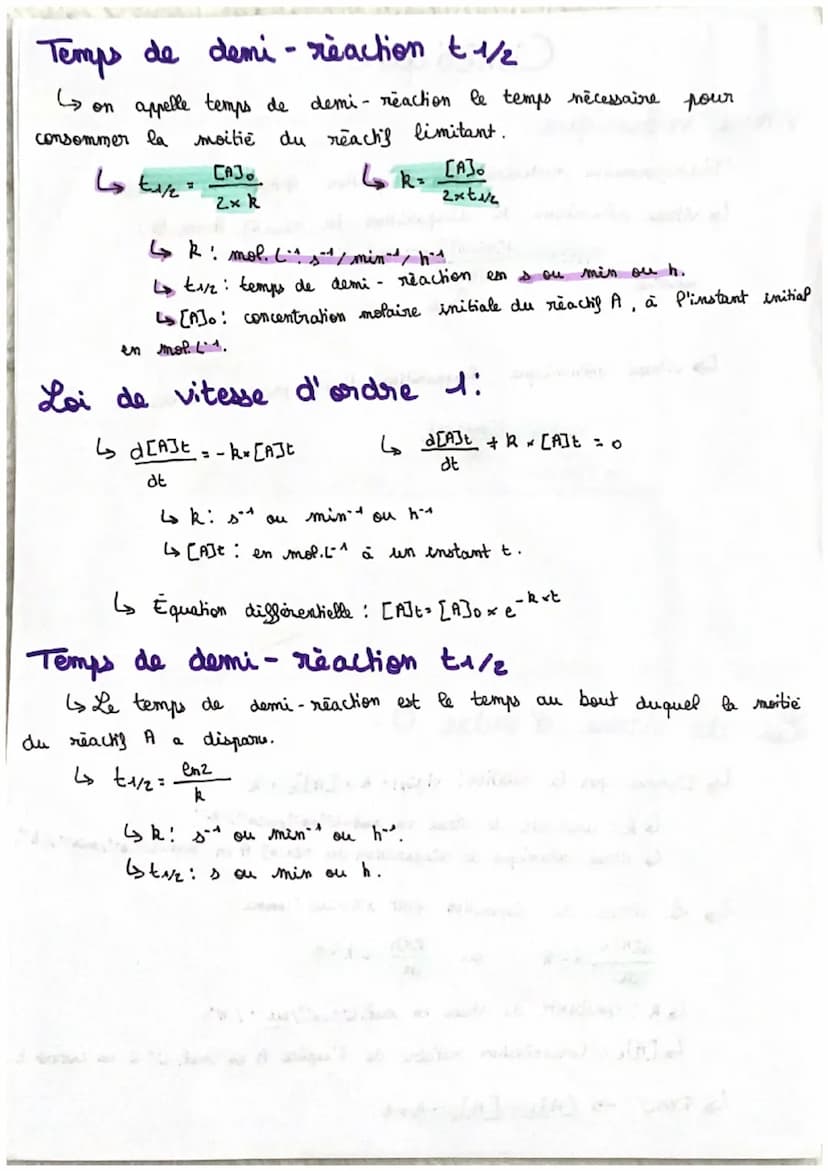 Temps de demi-réaction t 1/2
↳ on appelle temps de demi-réaction le temps nécessaire pour
consommer la moitié du réactif limitant.
↳ t1/2 = [A]0 / 2 × k ↳ k = [A]0 / 2×t1/2
↳ k : mol.L-1.s-1/min-1/h-1
↳ t1/2 : temps de demi-réaction en s ou min ou h.
↳ [A]0 : concentration molaire initiale du réactif A, à l'instant initial
en mol.L-1.
Loi de vitesse d'ordre 1 :
↳ d[A]t / dt = -k×[A]t ↳ d[A]t / dt + k × [A]t = 0
↳ k : s-1 ou min-1 ou h-1
↳ [A]t : en mol.L-1 à un instant t.
↳ Équation différentielle : [A]t = [A]0 × e^-k×t
Temps de demi-réaction t1/2
↳ Le temps de demi-réaction est le temps au bout duquel la moitié
du réactif A a disparu.
↳ t1/2 = ln2 / k
↳ k : s-1 ou min-1 ou h-1.
↳ t1/2 : s ou min ou h.